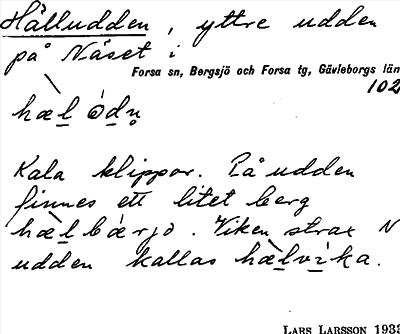 Hälludden, yttre udden
på Näset i
Forsa sn, Bergsjö och Forsa tg, Gävleborgs län
102
hæ̀l ódn̥
Kala klippor. På udden
finnes ett litet berg
hæ̀lbárjə. Viken strax N
udden kallas hæ̀lvìka.
LARS LARSSON 1933